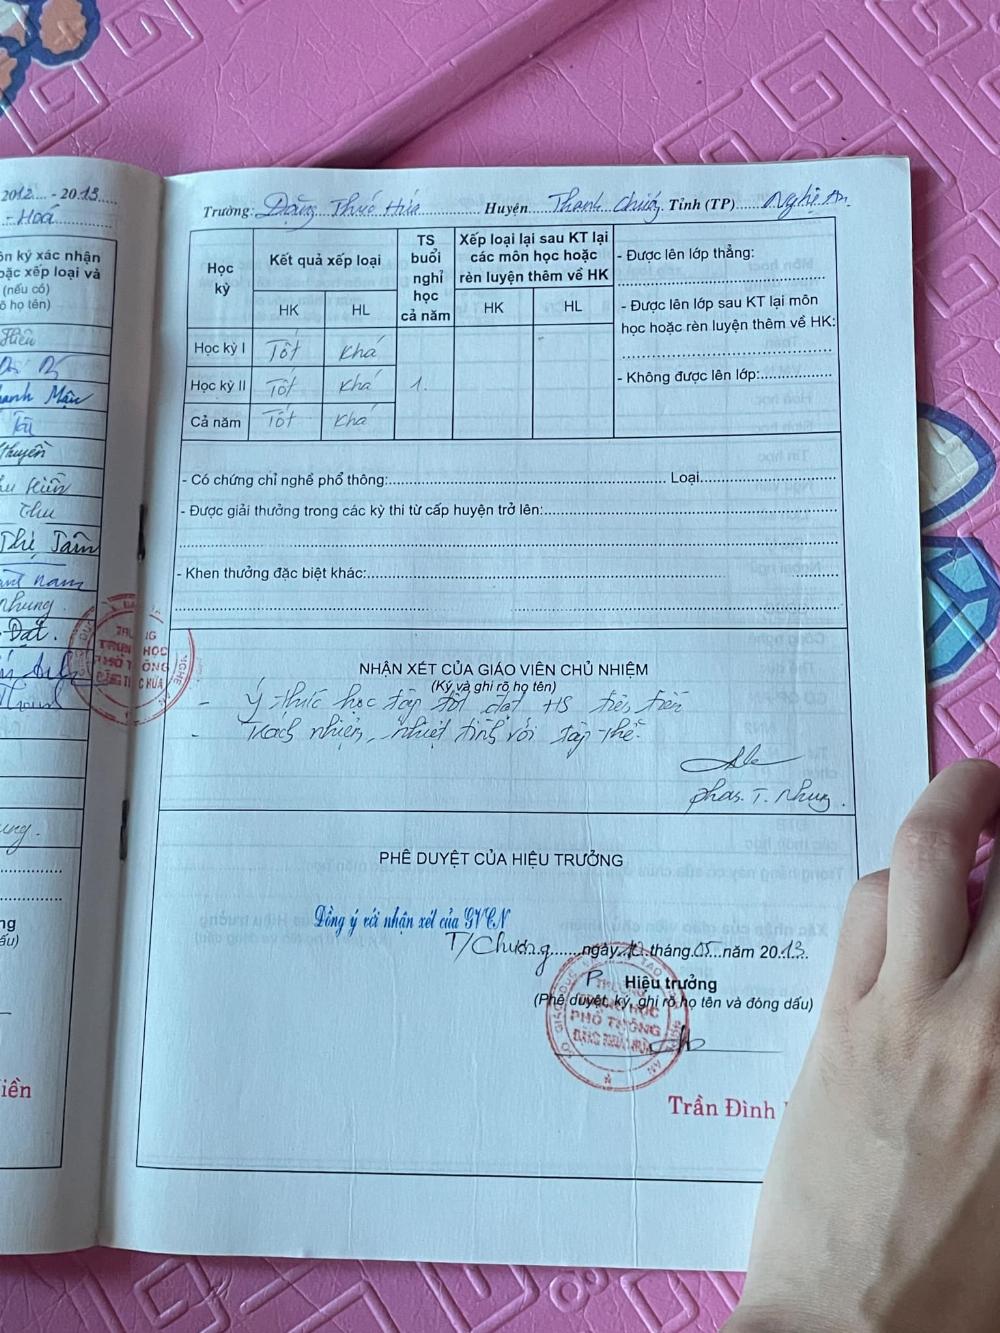 2012 - 2013
- Hoá
ôn ký xác nhận
oặc xếp loại và
(nếu có)
õ họ tên)
Hiền
anh Mậu
Kỳ
Thuyền
Hiền
Thu
Thị Tâm
Nam
Nhung
Đạt.
ng
ấu)
iền
Trường: Đặng Thúc Hứa Huyện Thanh Chương Tỉnh (TP) Nghệ An
Học kỳ
Kết quả xếp loại
HK HL
TS buổi nghỉ học cả năm
Xếp loại lại sau KT lại
các môn học hoặc
rèn luyện thêm về HK
HK HL
- Được lên lớp thẳng:
- Được lên lớp sau KT lại môn
học hoặc rèn luyện thêm về HK:
- Không được lên lớp:
Học kỳ I Tốt Khá
Học kỳ II Tốt Khá 1.
Cả năm Tốt Khá
- Có chứng chỉ nghề phổ thông: Loại
- Được giải thưởng trong các kỳ thi từ cấp huyện trở lên:
- Khen thưởng đặc biệt khác:
TRƯỜNG
TRUNG HỌC
PHỔ THÔNG
ĐẶNG THÚC HỨA
NHẬN XÉT CỦA GIÁO VIÊN CHỦ NHIỆM
(Ký và ghi rõ họ tên)
- Ý thức học tập tốt đạt HS tiên tiến
- Trách nhiệm, nhiệt tình với tập thể.
Phan. T. Nhung.
PHÊ DUYỆT CỦA HIỆU TRƯỞNG
Đồng ý với nhận xét của GVCN
T/Chương ngày tháng 05 năm 2013.
P. Hiệu trưởng
(Phê duyệt, ký, ghi rõ họ tên và đóng dấu)
TRƯỜNG
TRUNG HỌC
PHỔ THÔNG
ĐẶNG THÚC HỨA
Trần Đình